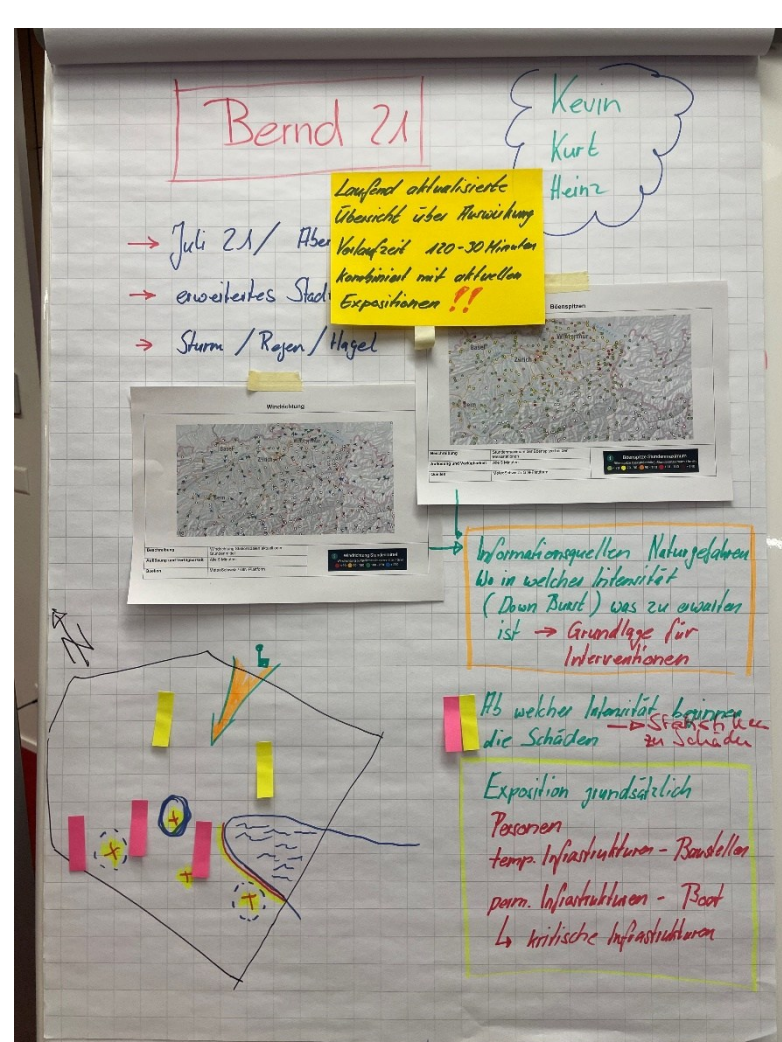 Bernd 21
Kevin
Kurt
Heinz
Laufend aktualisierte
Übersicht über Auswirkung
Vorlaufzeit 120-30 Minuten
kombiniert mit aktuellen
Expositionen !!
→ Juli 21 / Aber
→ erweitertes Stad
→ Sturm / Regen / Hagel
Böenspitzen
Basel
Winterthur
Zürich
Bern
Beschreibung
Auflösung und Verfügbarkeit
Quellen
Windrichtung
Basel
Zürich
Bern
Beschreibung
Auflösung und Verfügbarkeit
Quellen
Informationsquellen Naturgefahren
Wo in welcher Intensität
(Down Burst) was zu erwarten
ist → Grundlage für
Interventionen
N
Ab welcher Intensität beginnen
die Schäden → Statistiken
zu Schäden
Exposition grundsätzlich
Personen
temp. Infrastrukturen - Baustellen
perm. Infrastrukturen - Boot
↳ kritische Infrastrukturen